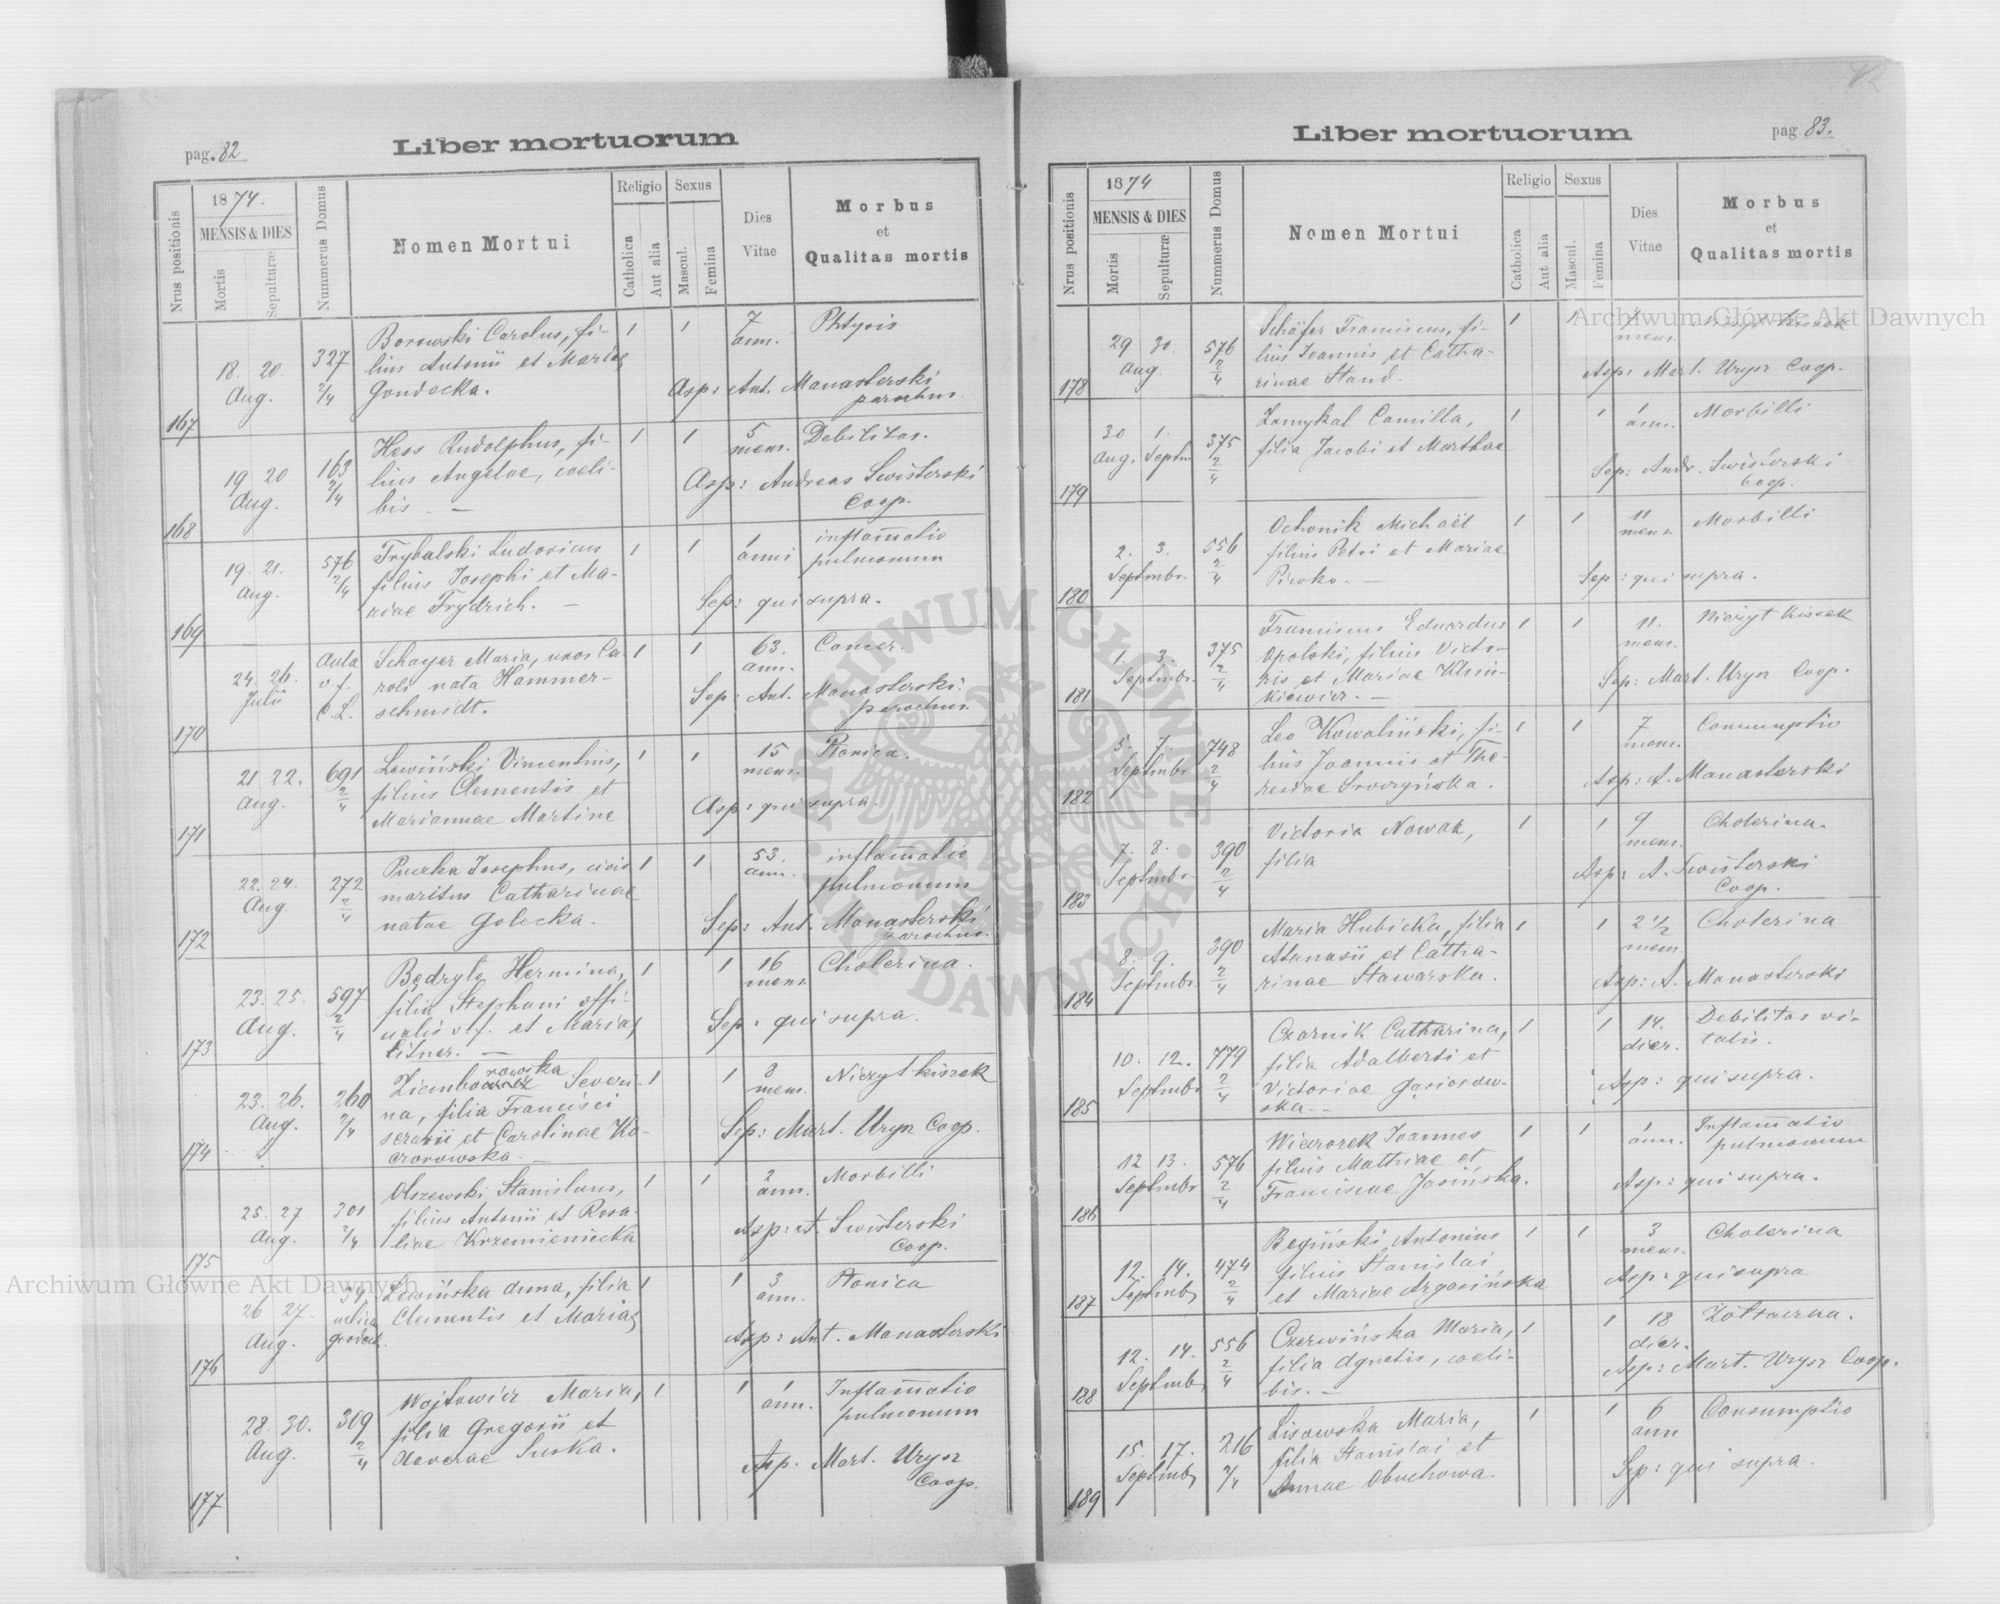 pag. 82
Liber mortuorum
Nrus positionis
1874.
MENSIS & DIES
Mortis
Sepulturæ
Nummerus Domus
Nomen Mortui
Religio
Catholica
Aut alia
Sexus
Mascul.
Femina
Dies
Vitae
Morbus
et
Qualitas mortis
167
18. 20.
Aug.
327
2/4
Borowski Carolus, fi-
lius Antonii et Mariae
Gondecka.
1 1
7
ann.
Phtysis
Asp: Ant. Manasterski
parochus.
168
19 20
Aug.
163
2/4
Hess Rudolphus, fi-
lius Angelae, coeli-
bis. —
1 1
5
mens.
Debilitas.
Asp: Andreas Swisterski
Coop.
169
19. 21.
Aug.
576
2/4
Trybalski Ludovicus
filius Josephi et Ma-
riae Frydrich. —
1 1
1
anni
inflamatio
pulmonum
Sep: qui supra.
170
24. 26.
Julii
Aula
v.f.
C.L.
Schayer Maria, uxor Ca-
roli nata Hammer-
schmidt.
1 1
63.
ann.
Cancer.
Sep: Ant. Manasterski
parochus.
171
21 22.
Aug.
691
2/4
Lewiński Vincentius,
filius Clementis et
Mariannae Martine
1 1
15
mens.
Płonica.
Asp: qui supra.
172
22. 24.
Aug
272
2/4
Puczka Josephus, civis
maritus Catharinae
natae Golecka.
1 1
53.
ann.
inflamatio
pulmonum
Sep: Ant. Manasterski
parochus.
173
23. 25.
Aug.
597
2/4
Będryło Hermina,
filia Stephani offi-
cialis v.f. et Mariae
Litner. —
1 1
16
mens
Cholerina.
Sep: qui supra.
174
23. 26.
Aug.
260
2/4
Severi-
na, filia Francisci
et Carolinae Ka-
czorowska. —
1 1
3
mens.
Nieżyt kiszek
Sep: Mart. Urysz Coop.
175
25. 27
Aug.
301
2/4
Olszewski Stanislaus,
filius Antonii et Rosa-
liae Krzemieniecka
1 1
2
ann.
Morbilli
Asp: A. Swisterski
Coop.
176
26 27.
Aug.
39
ulica
grodeck.
Lewińska Anna, filia
Clementis et Mariae
1 1
3
ann.
Płonica
Asp: Ant. Manasterski
177
28. 30.
Aug.
309
2/4
Wojtowicz Maria,
filia Gregorii et
Xaverae Suska.
1 1
1
ann.
Inflamatio
pulmonum
Asp. Mart. Urysz
Coop.
pag 83.
Liber mortuorum
Nrus positionis
1874
MENSIS & DIES
Mortis
Sepulturæ
Nummerus Domus
Nomen Mortui
Religio
Catholica
Aut alia
Sexus
Mascul.
Femina
Dies
Vitae
Morbus
et
Qualitas mortis
178
29 30.
Aug.
576
2/4
Schäfer Franciscus, fi-
lius Joannis et Catha-
rinae Stand.
1 1
mens.
Asp: Mart. Urysz Coop.
179
30 1.
Aug. Septm
375
2/4
Zamykal Camilla,
filia Jacobi et Marthae
1 1
1
ann.
Morbilli
Sep: Andr. Swisterski
Coop.
180
2. 3.
Septmbr.
556
2/4
Ochonik Michaël
filius Petri et Mariae
Piwko. —
1 1
11
mens.
Morbilli
Sep: qui supra.
181
1. 3.
Septmbr.
375
2/4
Franciscus Eduardus
Opolski, filius Victo-
ris et Mariae Klim-
kiewicz. —
1 1
11.
mens.
Nieżyt kiszek
Sep: Mart. Urysz Coop.
182
5. 7.
Septmbr
748
2/4
Leo Kowaliński, fi-
lius Joannis et The-
resiae Sroczyńska.
1 1
7
mens.
Consumptio
Asp: A. Manasterski
183
7. 8.
Septmbr.
390
2/4
Victoria Nowak,
filia
1 1
9
mens.
Cholerina.
Asp: A. Swisterski
Coop.
184
8. 9.
Septmbr.
390
2/4
Maria Hubicka, filia
Atanasii et Catha-
rinae Stawarska.
1 1
2 1/2
mens.
Cholerina
Asp: A. Manasterski
185
10. 12.
Septmbr
779
2/4
Czarnik Catharina,
filia Adalberti et
Victoriae Gąsiorow-
ska. —
1 1
14.
dier.
Debilitas vi-
talis.
Asp: qui supra.
186
12 13.
Septmbr
576
2/4
Wieczorek Joannes
filius Mathiae et
Franciscae Jasińska.
1 1
1
ann.
Inflamatio
pulmonum
Asp: qui supra.
187
12. 14.
Septmb
474
2/4
Begiński Antonius
filius Stanislai
et Mariae Argasińska
1 1
3
mens.
Cholerina
Asp: qui supra
188
12. 14.
Septmb
556
2/4
Czerwińska Maria,
filia Agnetis, coeli-
bis. —
1 1
18
dier.
Żółtaczka.
Asp: Mart. Urysz Coop.
189
15. 17.
Septmb
216
2/4
Lisowska Maria,
filia Stanislai et
Annae Obuchowa.
1 1
6
ann
Consumptio
Sep: qui supra.
Archiwum Główne Akt Dawnych
Archiwum Główne Akt Dawnych
ARCHIWUM GŁÓWNE AKT DAWNYCH